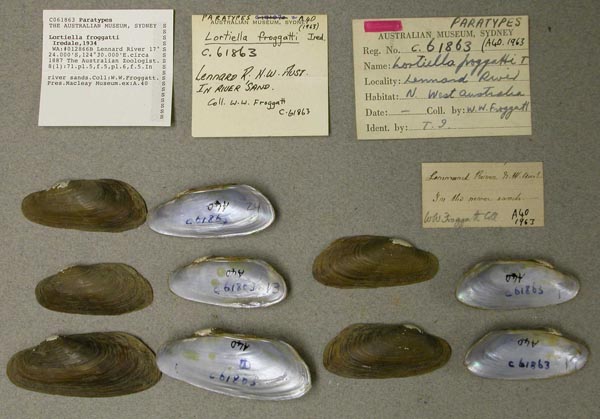 C061863 Paratypes
THE AUSTRALIAN MUSEUM, SYDNEY
Lortiella froggatti
Iredale, 1934
WA:#012886B Lennard River 17°
4.000'S,124°20.000'E.circa
1887 The Australian Zoologist.
8(1):71.pl.5,f.5,pl.6,f.5.In
river sands.Coll:W.W.Froggatt.
Pres.Macleay Museum.ex:A.40
PARATYPES
A40
(1963)
AUSTRALIAN MUSEUM, SYDNEY
Lortiella froggatti Ired.
C.61863
LENNARD R. N.W. AUST.
IN RIVER SAND.
Coll. W.W. Froggatt
C.61863
PARATYPES
AUSTRALIAN MUSEUM, SYDNEY
Reg. No. C.61863 (A40.1963)
Name: Lortiella froggatti I.
Locality: Lennard River
Habitat: N. West Australia
Date: — Coll. by: W.W. Froggatt
Ident. by: T.I.
Lennard River N.W. Aust.
In the river sands
W W Froggatt Coll
A40
1963
A40
C61863
A40
C61863
A40
C61863
A40
C61863
A40
C61863